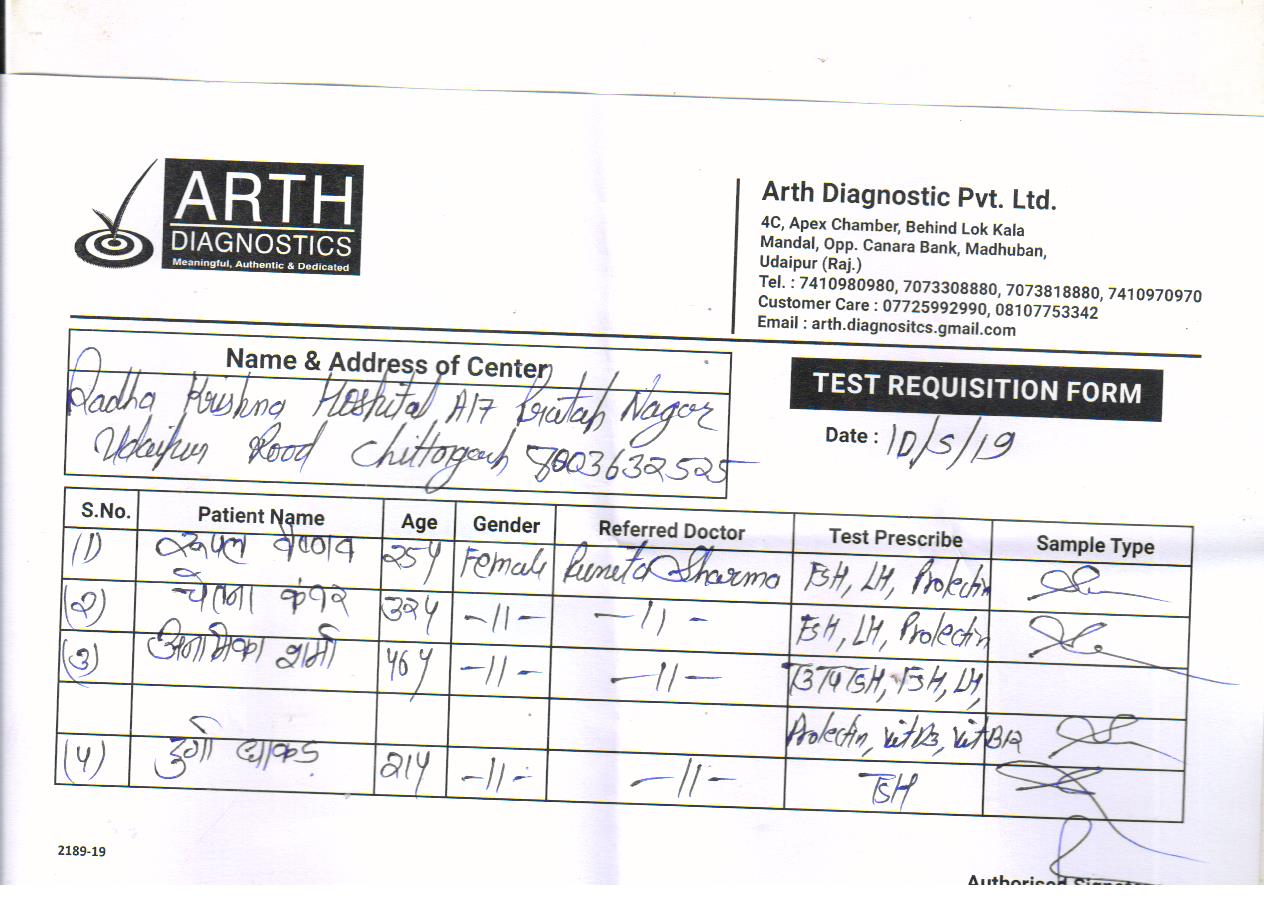 ARTH
DIAGNOSTICS
Meaningful, Authentic & Dedicated
Arth Diagnostic Pvt. Ltd.
4C, Apex Chamber, Behind Lok Kala
Mandal, Opp. Canara Bank, Madhuban,
Udaipur (Raj.)
Tel. : 7410980980, 7073308880, 7073818880, 7410970970
Customer Care : 07725992990, 08107753342
Email : arth.diagnositcs.gmail.com
Name & Address of Center
Radha Krishna Hoshital A17 Pratap Nagar
Udaipur Road Chittorgarh 8003632525
TEST REQUISITION FORM
Date : 10/5/19
S.No. Patient Name Age Gender Referred Doctor Test Prescribe Sample Type
(1) वैष्णव 25y Female Puneeta Sharma FSH, LH, Prolectin
(2) चेतना कंवर 32y -11- -11- FSH, LH, Prolectin
(3) अनामिका शर्मा 46y -11- -11- T3T4TSH, FSH, LH,
Prolectin, vit D3, vit B12
(4) दुर्गा धाकड 21y -11- -11- TSH
2189-19
Authorised